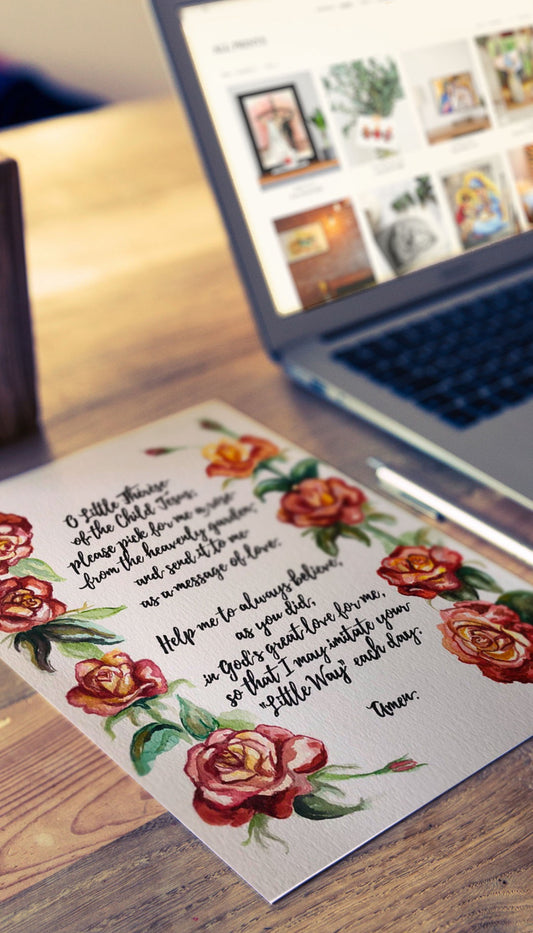 ALL PRINTS
O Little Thérèse
of the Child Jesus,
please pick for me a rose
from the heavenly garden,
and send it to me
as a message of love.
Help me to always believe,
as you did,
in God's great love for me,
so that I may imitate your
"Little Way" each day.
Amen.